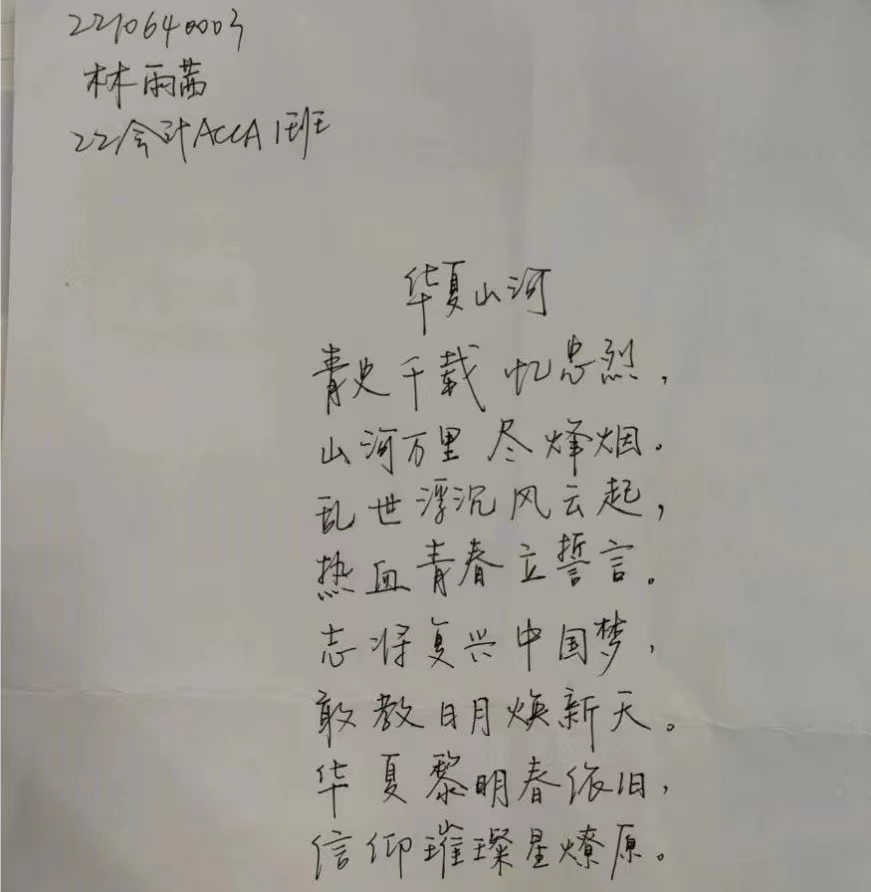 2210640003
林雨茜
22会计ACCA1班
华夏山河
青史千载忆忠烈，
山河万里尽烽烟。
乱世浮沉风云起，
热血青春立誓言。
志将复兴中国梦，
敢教日月焕新天。
华夏黎明春依旧，
信仰璀璨星燎原。